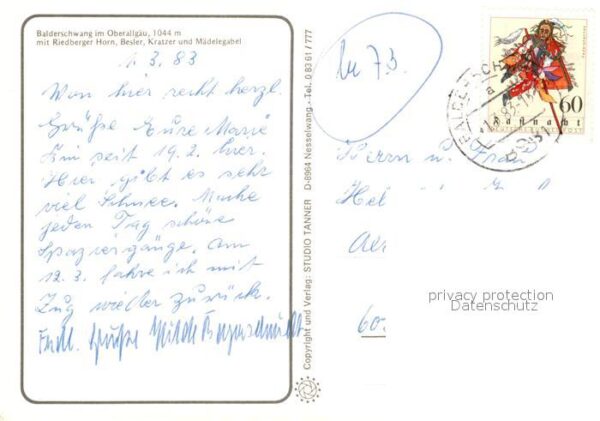 Balderschwang im Oberallgäu, 1044 m
mit Riedberger Horn, Besler, Kratzer und Mädelegabel
1 3. 83
Von hier recht herzl.
Grüße Eure Marie
Bin seit 19.2. hier.
Hier gibt es sehr
viel Schnee. Mache
jeden Tag schöne
Spaziergänge. Am
12.3. fahre ich mit
Zug wieder zurück.
Frdl. Grüße Hilde
Copyright und Verlag: STUDIO TANNER D-8964 Nesselwang - Tel. 0 83 61 / 777
7.3.
60
Fastnacht
DEUTSCHE BUNDESPOST
Herrn u. Frau
Hel
60
privacy protection
Datenschutz